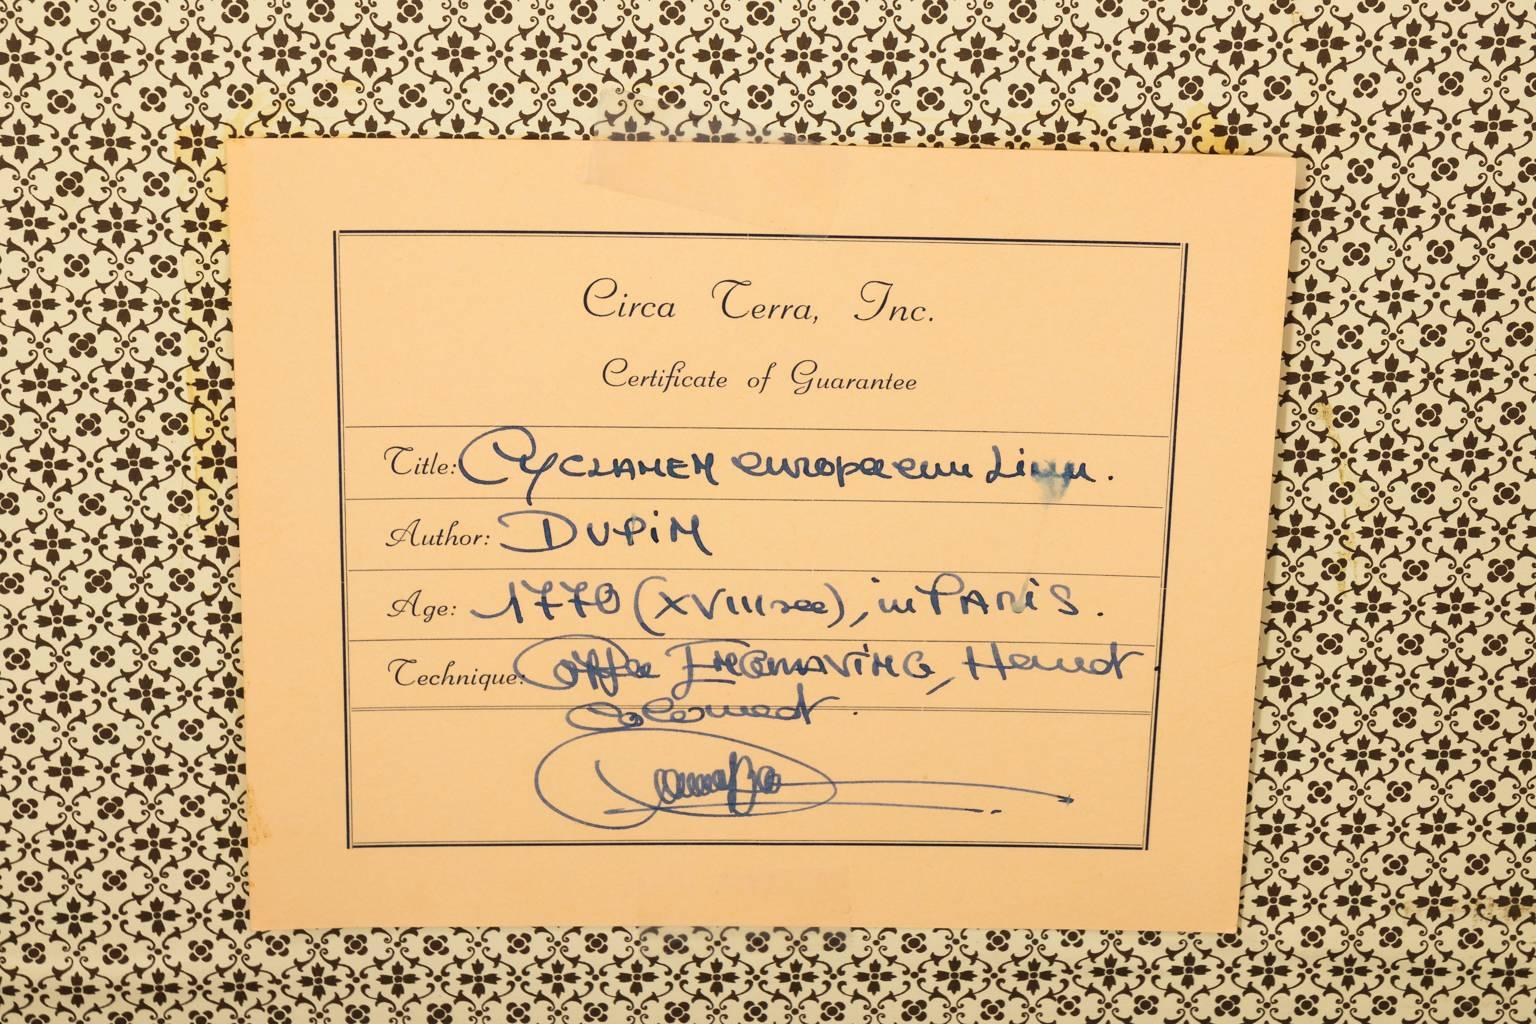 Circa Terra, Inc.
Certificate of Guarantee
Title: Cyclamen europaeum Linn.
Author: Dupin
Age: 1770 (XVIII sec), in Paris.
Technique: Copper Engraving, Hand
Colored.